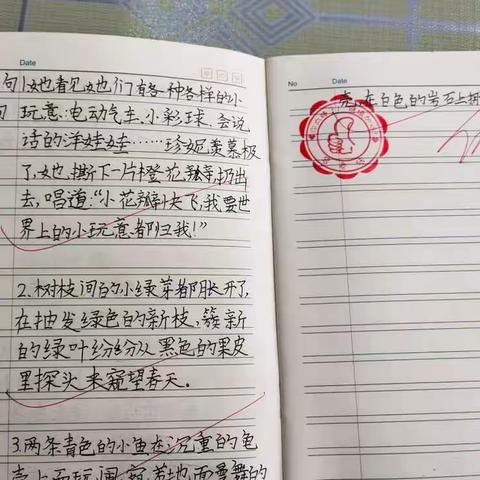 Date
句 1.她看见她们有各种各样的小
玩意:电动气车、小彩球、会说
话的洋娃娃……珍妮羡慕极
了,她撕下一片橙花瓣,扔出
去,唱道:“小花瓣快飞,我要世
界上的小玩意都归我!”
2.树枝间的小绿芽都胀开了,
在抽发绿色的新枝,簇新
的绿叶纷纷从黑色的果皮
里探头来窥望春天。
3.两条青色的小鱼在沉重的龟
壳上面玩闹,
No Date
壳,在白色的岩石上